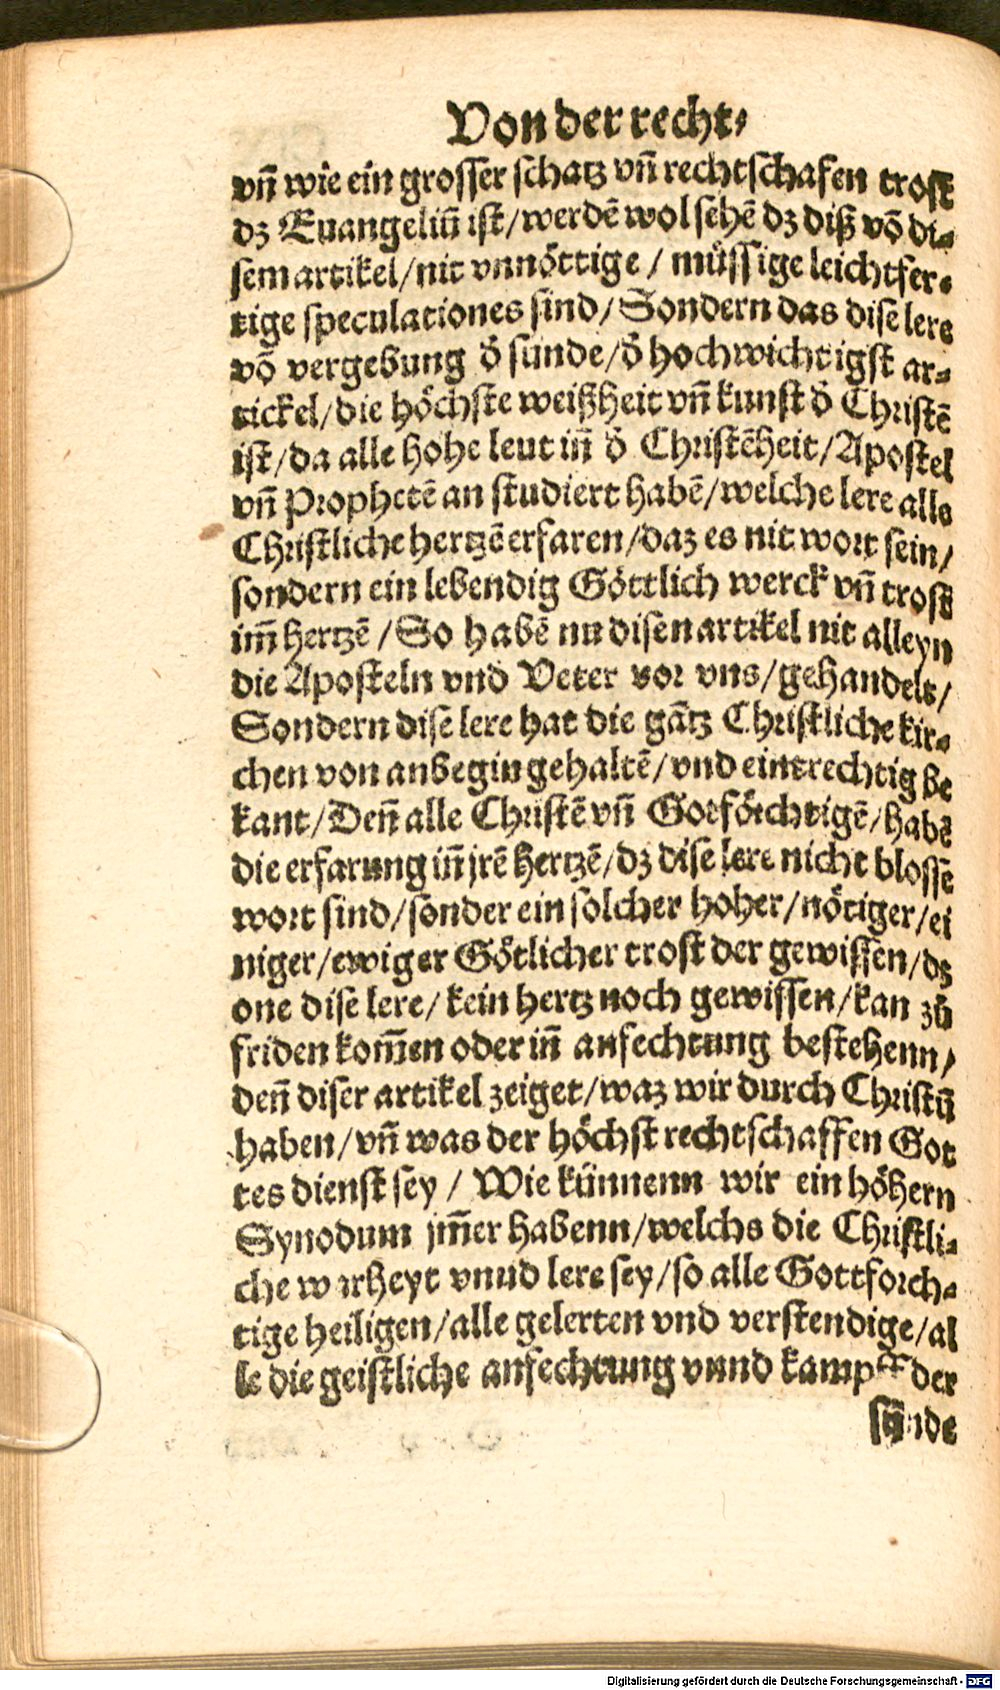 Von der recht⸗
vñ wie ein grosser schatz vñ rechtschafen trost
dz Euangeliũ ist/werdẽ wol sehẽ dz diß võ di⸗
sem artikel/nit vnnöttige / müssige leichtfer⸗
tige speculationes sind/Sondern das dise lere
võ vergebung ď sunde/ď hochwichtigst ar⸗
tickel/die höchste weißheit vñ kunst ď Christẽ
ist/da alle hohe leut iñ ď Christẽheit/Apostel
vñ Prophetẽ an studiert habẽ/welche lere alle
Christliche hertzẽ erfaren/daz es nit wort sein/
sondern ein lebendig Göttlich werck vñ trost
im̃ hertzẽ /So habẽ nu disen artikel nit alleyn
die Aposteln vnd Veter vor vns/gehandelt/
Sondern dise lere hat die gãtz Christliche kir⸗
chen von anbegin gehaltẽ/vnd eintrechtig be
kant/Deñ alle Christẽ vñ Gotförchtigẽ/habẽ
die erfarung iñ jrẽ hertzẽ/dz dise lere nicht blossẽ
wort sind/sonder ein solcher hoher/nötiger/ei
niger/ewiger Götlicher trost der gewissen/dz
one dise lere/kein hertz noch gewissen/kan zů
friden kom̃en oder iñ anfechtung bestehenn/
deñ diser artikel zeiget/waz wir durch Christũ
haben/vñ was der höchst rechtschaffen Got
tes dienst sey / Wie künnenn wir ein höhern
Synodum jm̃er habenn/welchs die Christli⸗
che warheyt vnnd lere sey/so alle Gottforch⸗
tige heiligen/alle gelerten vnd verstendige/al
le die geistliche anfechtung vnnd kampff der
sünde
Digitalisierung gefördert durch die Deutsche Forschungsgemeinschaft - DFG